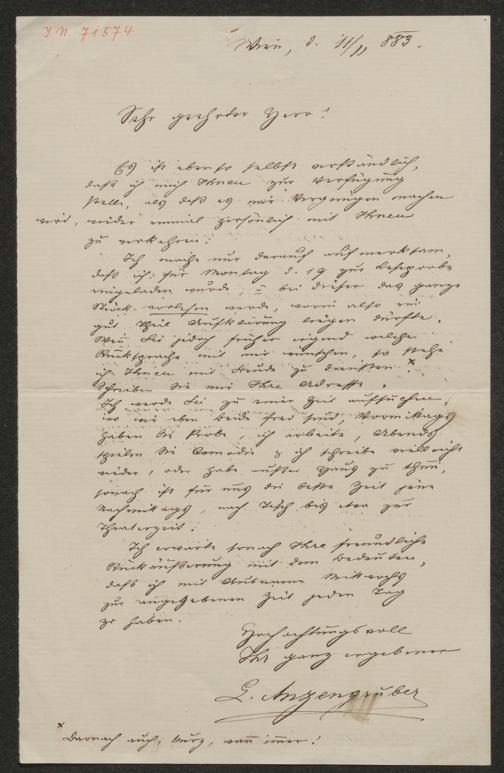 IN 71574
Wien, d. 11/11 883.
Sehr geehrter Herr!
Es ist ebenso selbstverständlich,
daß ich mich Ihnen zur Verfügung
stelle, als daß es mir Vergnügen machen
wird, wieder einmal persönlich mit Ihnen
zu verkehren.
Ich mache nur darauf aufmerksam,
daß ich für Montag d. 19 zur Leseprobe
eingeladen wurde, u bei dieser das ganze
Stück vorlesen werde, worin also ein
gut Theil Aufklärung liegen dürfte.
Wenn Sie jedoch früher irgend welche
Rücksprache mit mir wünschen, so stehe
ich Ihnen mit Freude zu Diensten. x
Schreiben Sie mir Ihre Adresse.
Ich werde Sie zu einer Zeit aufsuchen,
wo wir eben beide frei sind, Vormittags
haben Sie Probe, ich arbeite, Abends
spielen Sie Comödie & ich schreibe vielleicht
wieder, oder habe außer Haus zu thun,
sonach ist für uns die beste Zeit jene
Nachmittags, nach Tisch bis etwa zur
Theaterzeit.
Ich erwarte sonach Ihre freundliche
Rückäußerung mit dem Bedeuten,
daß ich mit Ausnahme Mittwochs
zur angegebenen Zeit jeden Tag
zu haben.
Hochachtungsvoll
Ihr ganz ergebener
L. Anzengruber
x Darnach auch, kurz, wann immer!